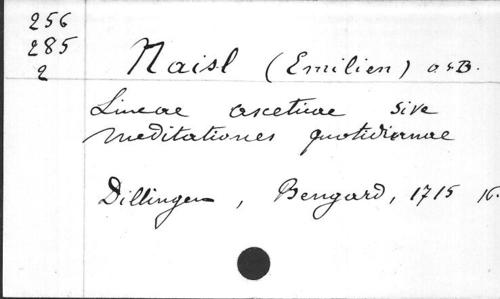 256
285
2
Naisl (Emilien) o.s.B.
Lineae asceticae sive
meditationes quotidianae
Dillingen, Bengard, 1715 16.